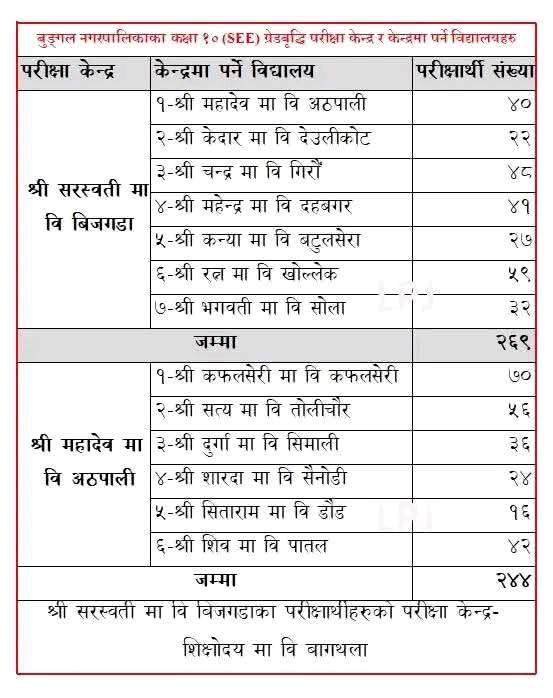 बुङ्गल नगरपालिकाका कक्षा १० (SEE) ग्रेडबृद्धि परीक्षा केन्द्र र केन्द्रमा पर्ने विद्यालयहरु
परीक्षा केन्द्र केन्द्रमा पर्ने विद्यालय परीक्षार्थी संख्या
श्री सरस्वती मा
वि बिजगडा
१-श्री महादेव मा वि अठपाली ४०
२-श्री केदार मा वि देउलीकोट २२
३-श्री चन्द्र मा वि गिरौं ४८
४-श्री महेन्द्र मा वि दहबगर ४१
५-श्री कन्या मा वि बटुलसेरा २७
६-श्री रत्न मा वि खोल्लेक ५९
७-श्री भगवती मा वि सोला ३२
जम्मा २६९
श्री महादेव मा
वि अठपाली
१-श्री कफलसेरी मा वि कफलसेरी ७०
२-श्री सत्य मा वि तोलीचौर ५६
३-श्री दुर्गा मा वि सिमाली ३६
४-श्री शारदा मा वि सैनोडी २४
५-श्री सिताराम मा वि डौड १६
६-श्री शिव मा वि पातल ४२
जम्मा २४४
श्री सरस्वती मा वि बिजगडाका परीक्षार्थीहरुको परीक्षा केन्द्र-
शिक्षोदय मा वि बागथला